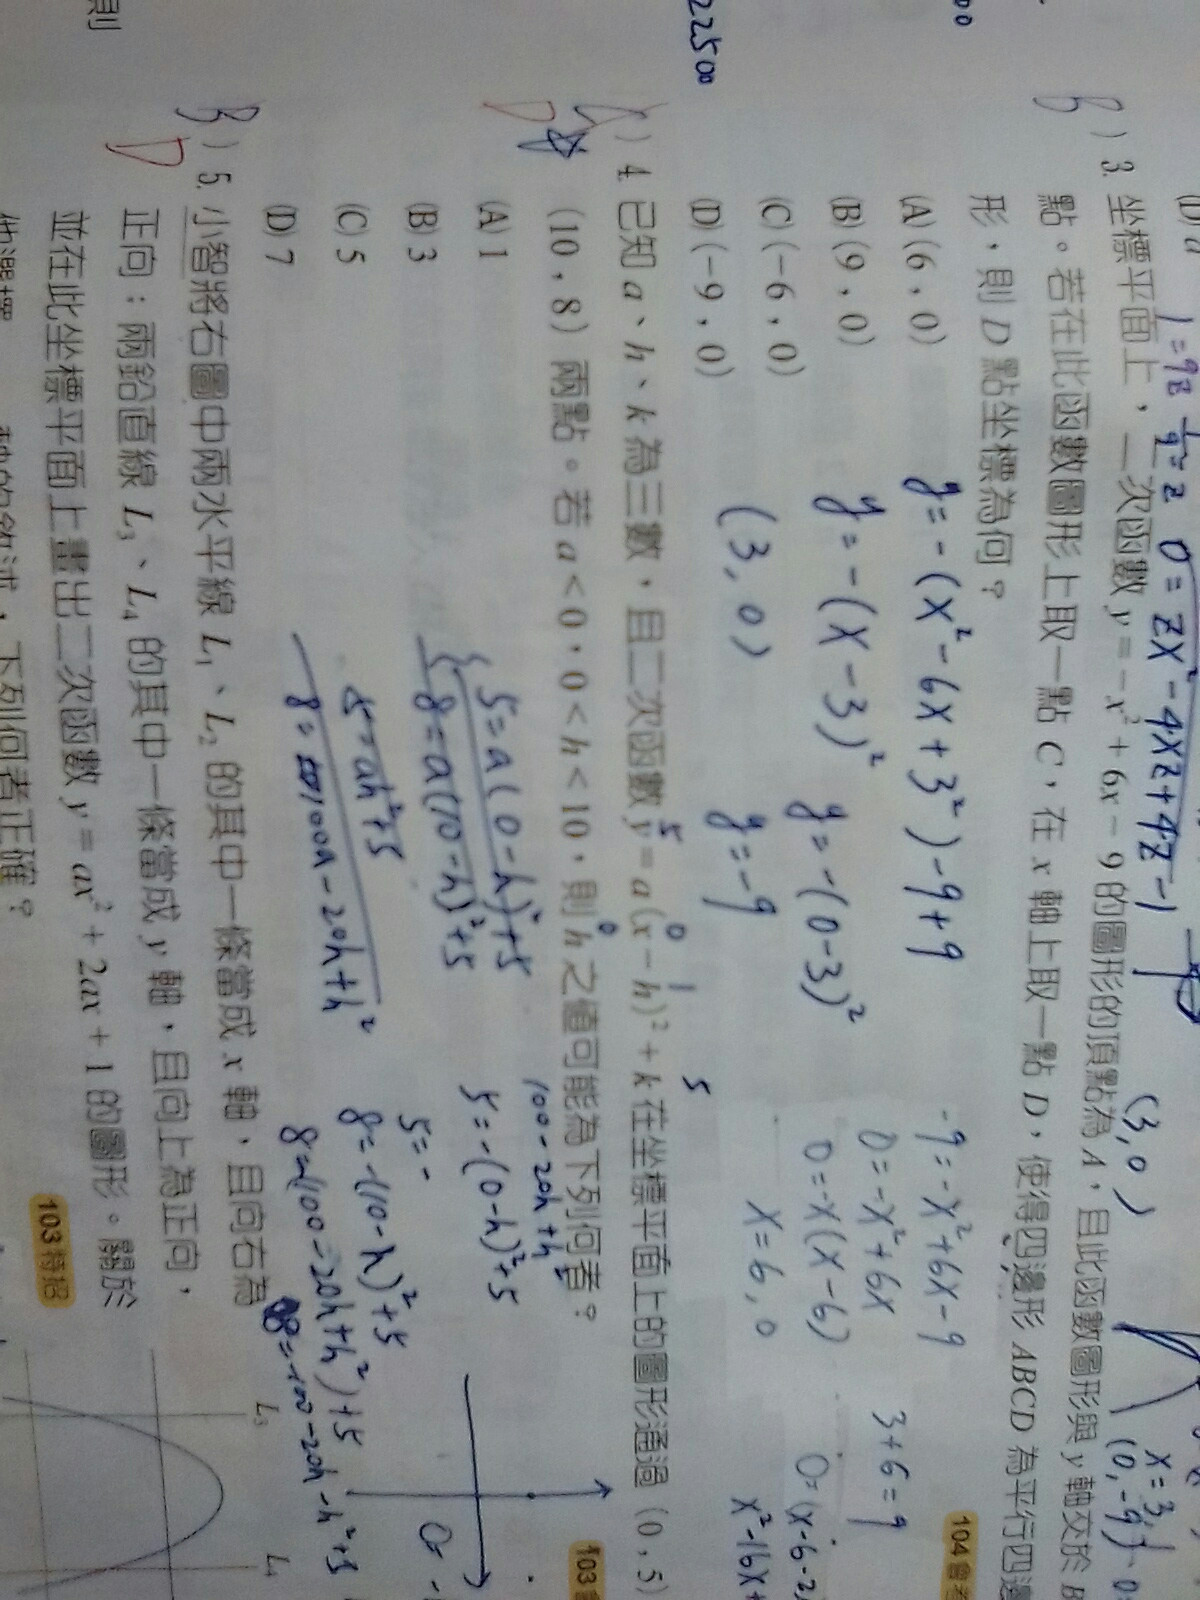 22500
00
則
1=9z 1/9=z 0=zx²-4xz+4z-1
(3,0)
B ) 3. 坐標平面上,二次函數 y=-x²+6x-9 的圖形的頂點為 A,且此函數圖形與 y 軸交於 B
點。若在此函數圖形上取一點 C,在 x 軸上取一點 D,使得四邊形 ABCD 為平行四邊
形,則 D 點坐標為何?
104 會考
(A) (6,0)
(B) (9,0)
(C) (-6,0)
(D) (-9,0)
y=-(x²-6x+3²)-9+9
y=-(x-3)²
(3,0)
y=-(0-3)²
y=-9
-9=-x²+6x-9
0=-x²+6x
0=-x(x-6)
x=6,0
3+6=9
(0,-9)
x=3
) 4. 已知 a、h、k 為三數,且二次函數 y=a(x-h)²+k 在坐標平面上的圖形通過 (0,5)、
(10,8) 兩點。若 a<0,0<h<10,則 h 之值可能為下列何者?
103
(A) 1
(B) 3
(C) 5
(D) 7
D
5=a(0-h)²+5
8=a(10-h)²+5
5=ah²+5
8=100a-20h+h²
100-20h+h
5=-(0-h)²+5
5=-
8=-(10-h)²+5
8=-(100-20h+h²)+5
B ) 5. 小智將右圖中兩水平線 L₁、L₂ 的其中一條當成 x 軸,且向右為
正向;兩鉛直線 L₃、L₄ 的其中一條當成 y 軸,且向上為正向,
並在此坐標平面上畫出二次函數 y=ax²+2ax+1 的圖形。關於
下列何者正確?
103 特招
D
L₃
L₄